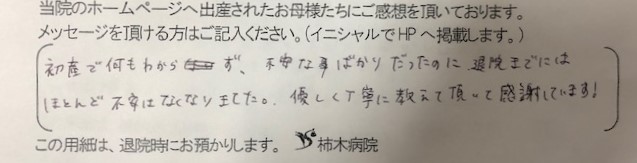 当院のホームページへ出産されたお母様たちにご感想を頂いております。
メッセージを頂ける方はご記入ください。（イニシャルでHPへ掲載します。）
初産で何もわからず、不安な事ばかりだったのに退院までには
ほとんど不安はなくなりました。優しく丁寧に教えて頂いて感謝しています!
この用紙は、退院時にお預かりします。 柿木病院